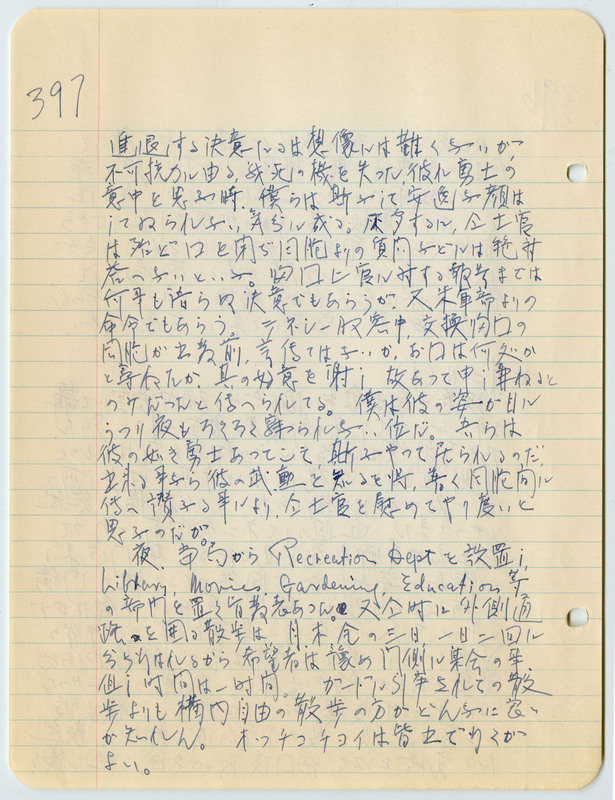 397
進退する決意たるは想像には難くないが、
不可抗力に由る戦死の機を失った彼れ勇士の
意中を思ふ時、僕らは斯ふして安逸な顔は
してねられない気分に成る。
は殆ど口を閉ぢ同胞よりの質問などには絶対
答へないといふ。 に対する報告までは
何事も語らぬ決意でもあらうが、又米軍部よりの
命令でもあらう。 テネシー収容中、交換
同胞が出発前、言伝ではないか、お口は何処か
と尋ねたが、其の好意を謝し故あって申し兼ねると
のみだったと伝へられてる。 僕は彼の姿が目に
うつり夜もろくろく寝られない位だ。吾らは
彼の如き勇士あってこそ、斯ふやって居られるのだ。
出来る事なら彼の武勲を 普く同胞間に
傳へ讃ふる事により、 士官を慰めてやり度いと
思ふのだが。
夜、当局から Recreation Dept を設置し、
Library, Movies, Gardening, Education 等
の部門を置く旨発表あった。又同時に外側通
路を囲る散歩は 月、木、金の三日 一日二回に
分ち行はれるから 希望者は豫め門側に集合の事
但し時間は一時間。 ガードに引率されての散
歩よりも構内自由の散歩の方がどんなに良い
か知れん。 オッチョコチョイは皆出てゆくが
よい。